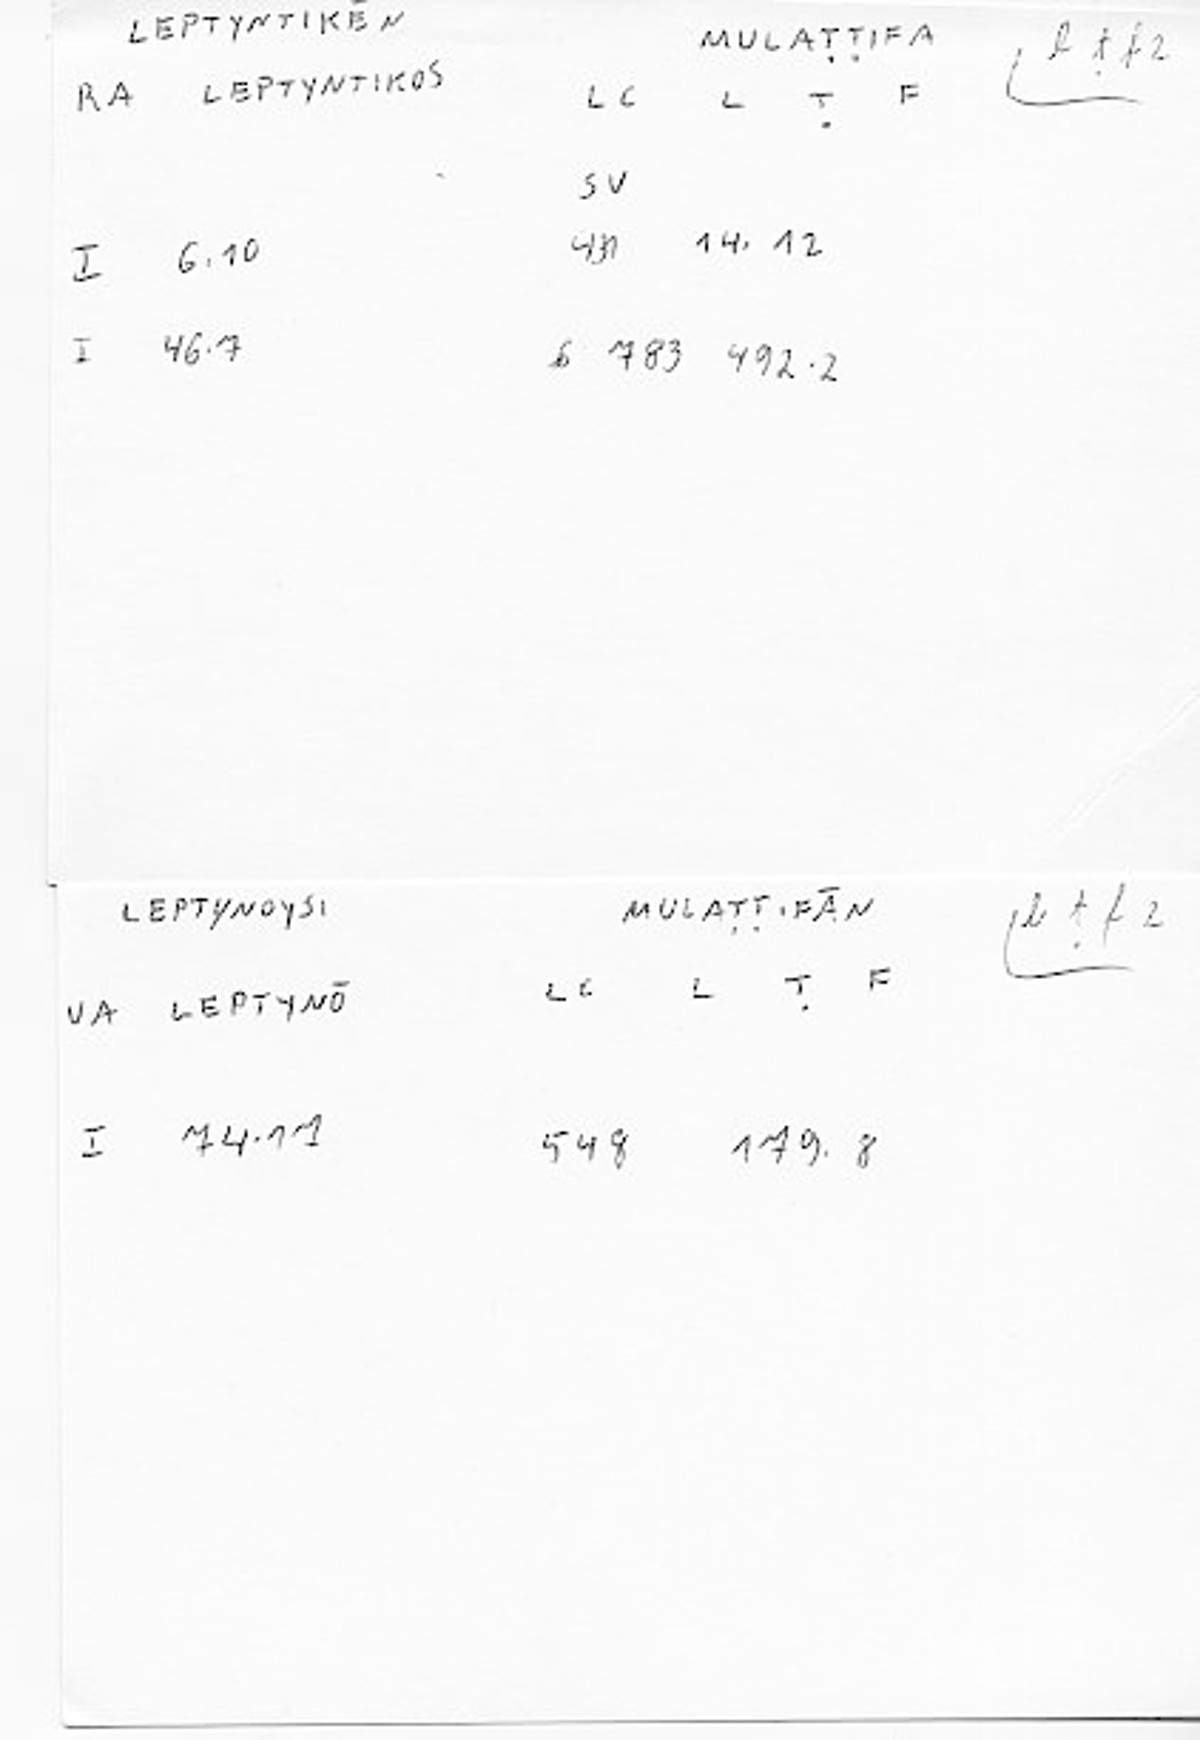 LEPTYNTIKĒN MULAṬṬIFA l ṭ f 2
RA LEPTYNTIKOS LC L Ṭ F
SV
I 6.10 14. 12
I 46.7 6 783 492.2
LEPTYNOYSI MULAṬṬIFĀN l ṭ f 2
VA LEPTYNŌ LC L Ṭ F
I 74.11 548 179. 8